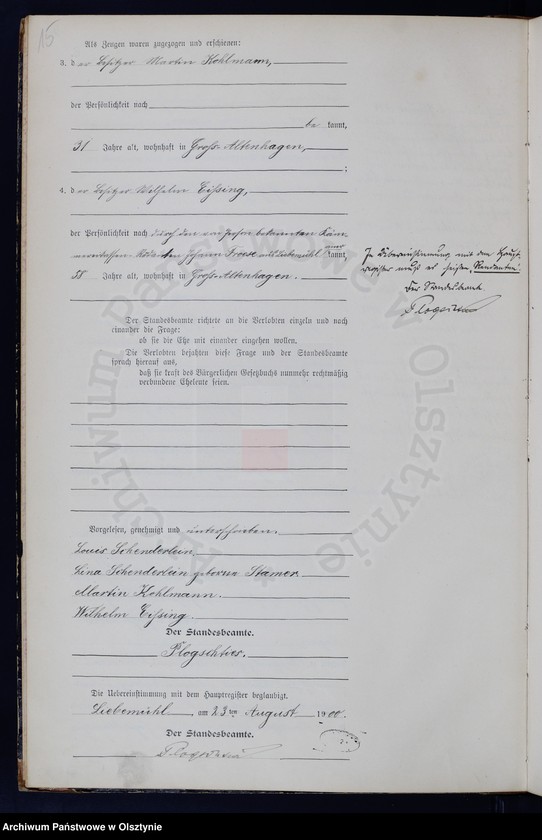 15
Als Zeugen waren zugezogen und erschienen:
3. der Besitzer Martin Kohlmann,
der Persönlichkeit nach
be kannt,
31 Jahre alt, wohnhaft in Groß-Altenhagen,
;
4. der Besitzer Wilhelm Eißing,
der Persönlichkeit nach durch den von Person bekannten Käm-
Johann aus Liebemühl aner kannt,
58 Jahre alt, wohnhaft in Groß-Altenhagen.
In Übereinstimmung mit dem Haupt-
register muß es heißen Rendanten.
Der Standesbeamte
Der Standesbeamte richtete an die Verlobten einzeln und nach
einander die Frage:
ob sie die Ehe mit einander eingehen wollen.
Die Verlobten bejahten diese Frage und der Standesbeamte
sprach hierauf aus,
daß sie kraft des Bürgerlichen Gesetzbuchs nunmehr rechtmäßig
verbundene Eheleute seien.
Vorgelesen, genehmigt und unterschrieben.
Louis Schenderlein,
Lina Schenderlein geborene Stamer.
Martin Kohlmann.
Wilhelm Eißing.
Der Standesbeamte.
Plogschties.
Die Uebereinstimmung mit dem Hauptregister beglaubigt.
Liebemühl, am 23ten August 1900.
Der Standesbeamte.
Archiwum Państwowe w Olsztynie
Archiwum Państwowe w Olsztynie